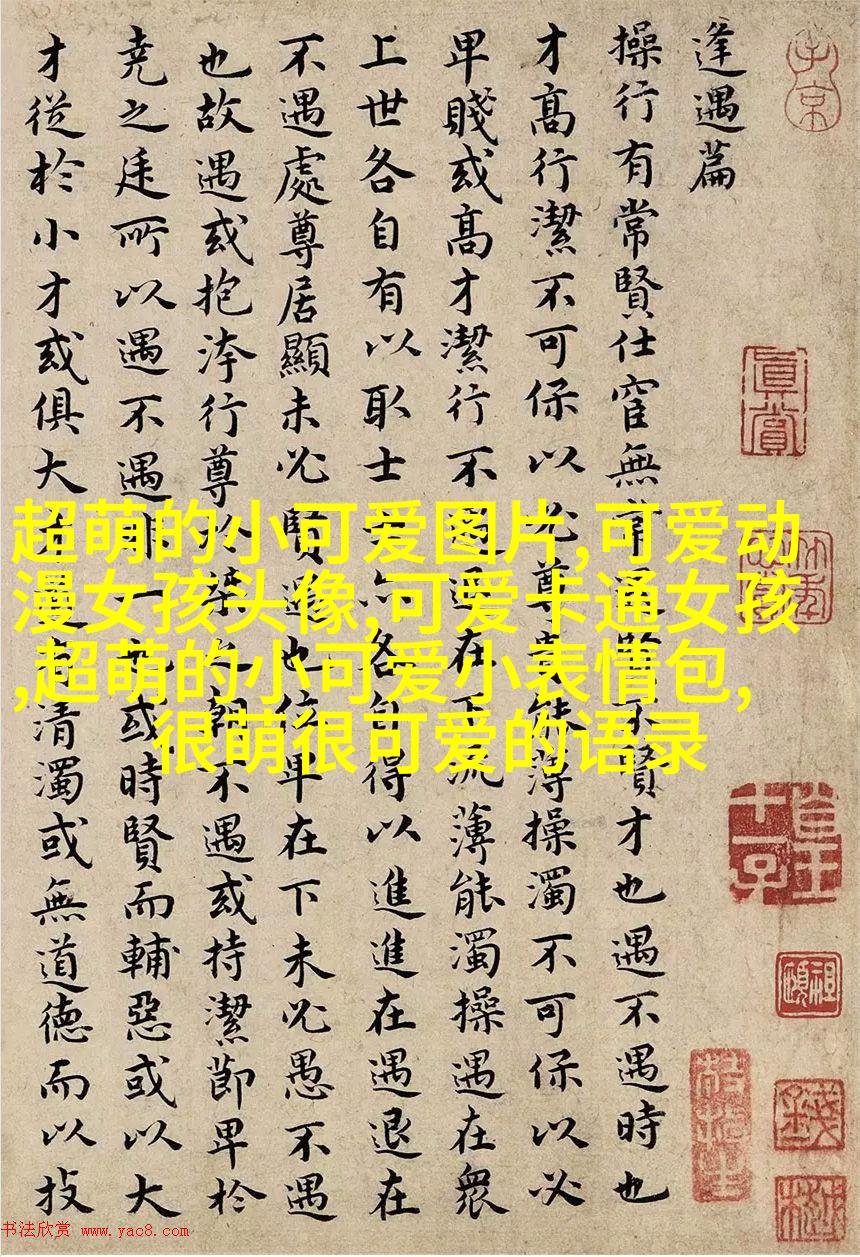 逢遇篇
操行有常賢仕宦無常遇賢不賢才也遇不遇時也
才高行潔不可保以必尊貴能薄操濁不可保以必
卑賤或高才潔行不遇退在下流薄能濁操遇在衆
上世各自有以取士士亦各自得以進進在遇退在
不遇處尊居顯未必賢遇也位卑在下未必愚不遇
也故遇或抱洿行尊於桀之朝不遇或持潔節卑於
堯之廷所以遇不遇非一也或時賢而輔惡或以大
才從於小才或俱大才道有清濁或無道德而以技
眞賞
超萌的小可爱图片,可爱动
漫女孩头像,可爱卡通女孩
,超萌的小可爱小表情包,
很萌很可爱的语录
书法欣赏 www.yac8.com